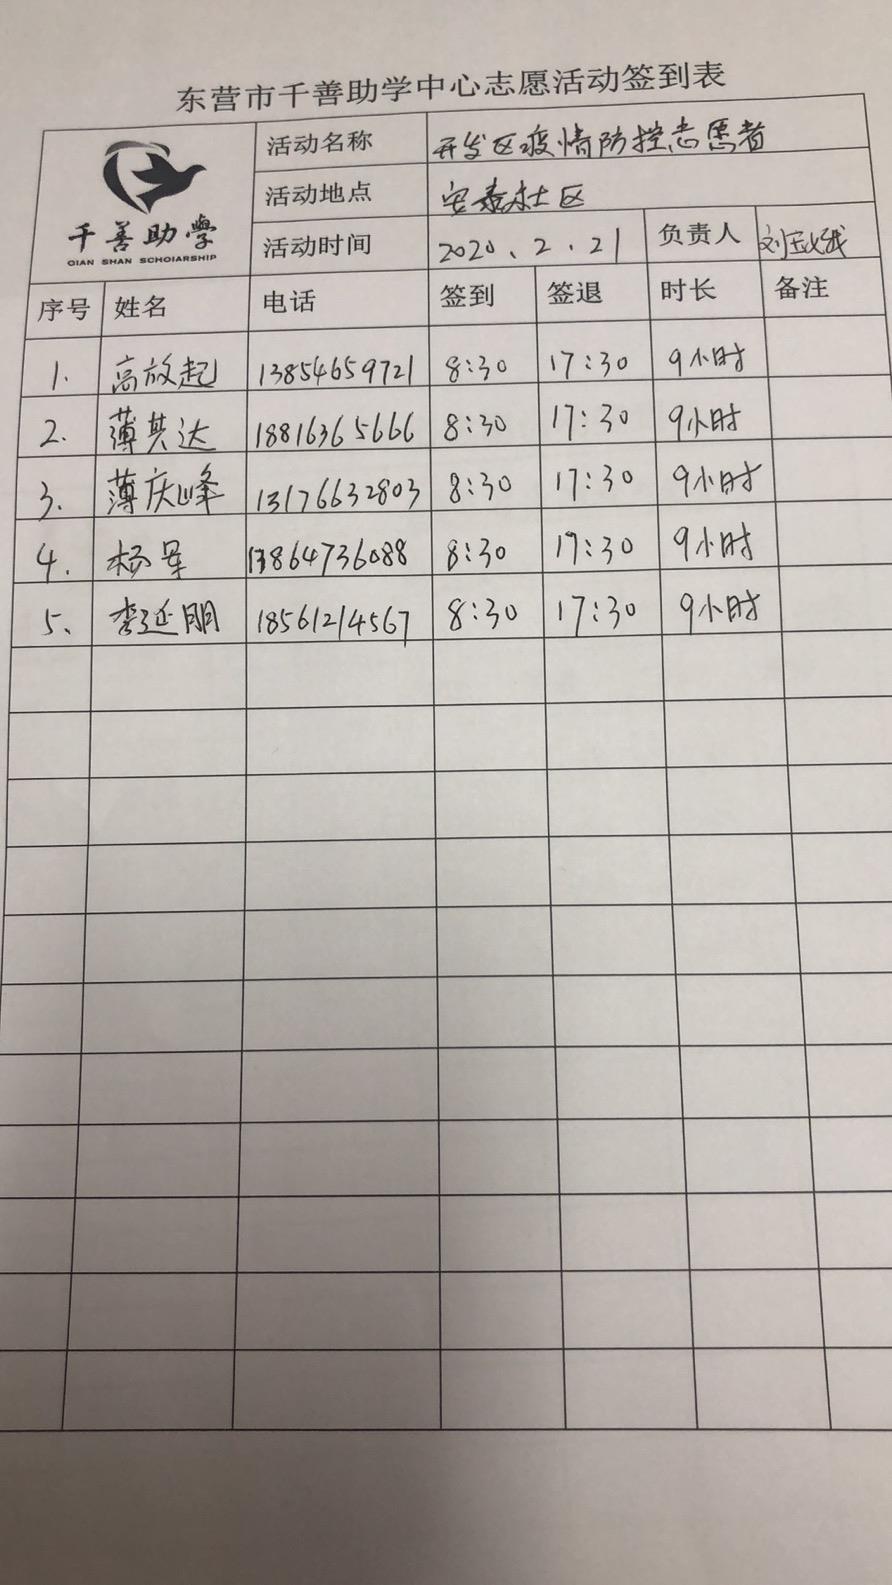 东营市千善助学中心志愿活动签到表
千善助学
QIAN SHAN SCHOlARSHIP
活动名称 开发区疫情防控志愿者
活动地点 安泰社区
活动时间 2020.2.21 负责人 刘玉
序号 姓名 电话 签到 签退 时长 备注
1. 高放起 13854659721 8:30 17:30 9小时
2. 薄其达 18816365666 8:30 17:30 9小时
3. 薄庆峰 13176632803 8:30 17:30 9小时
4. 杨军 13864736088 8:30 17:30 9小时
5、 李延朋 18561214567 8:30 17:30 9小时